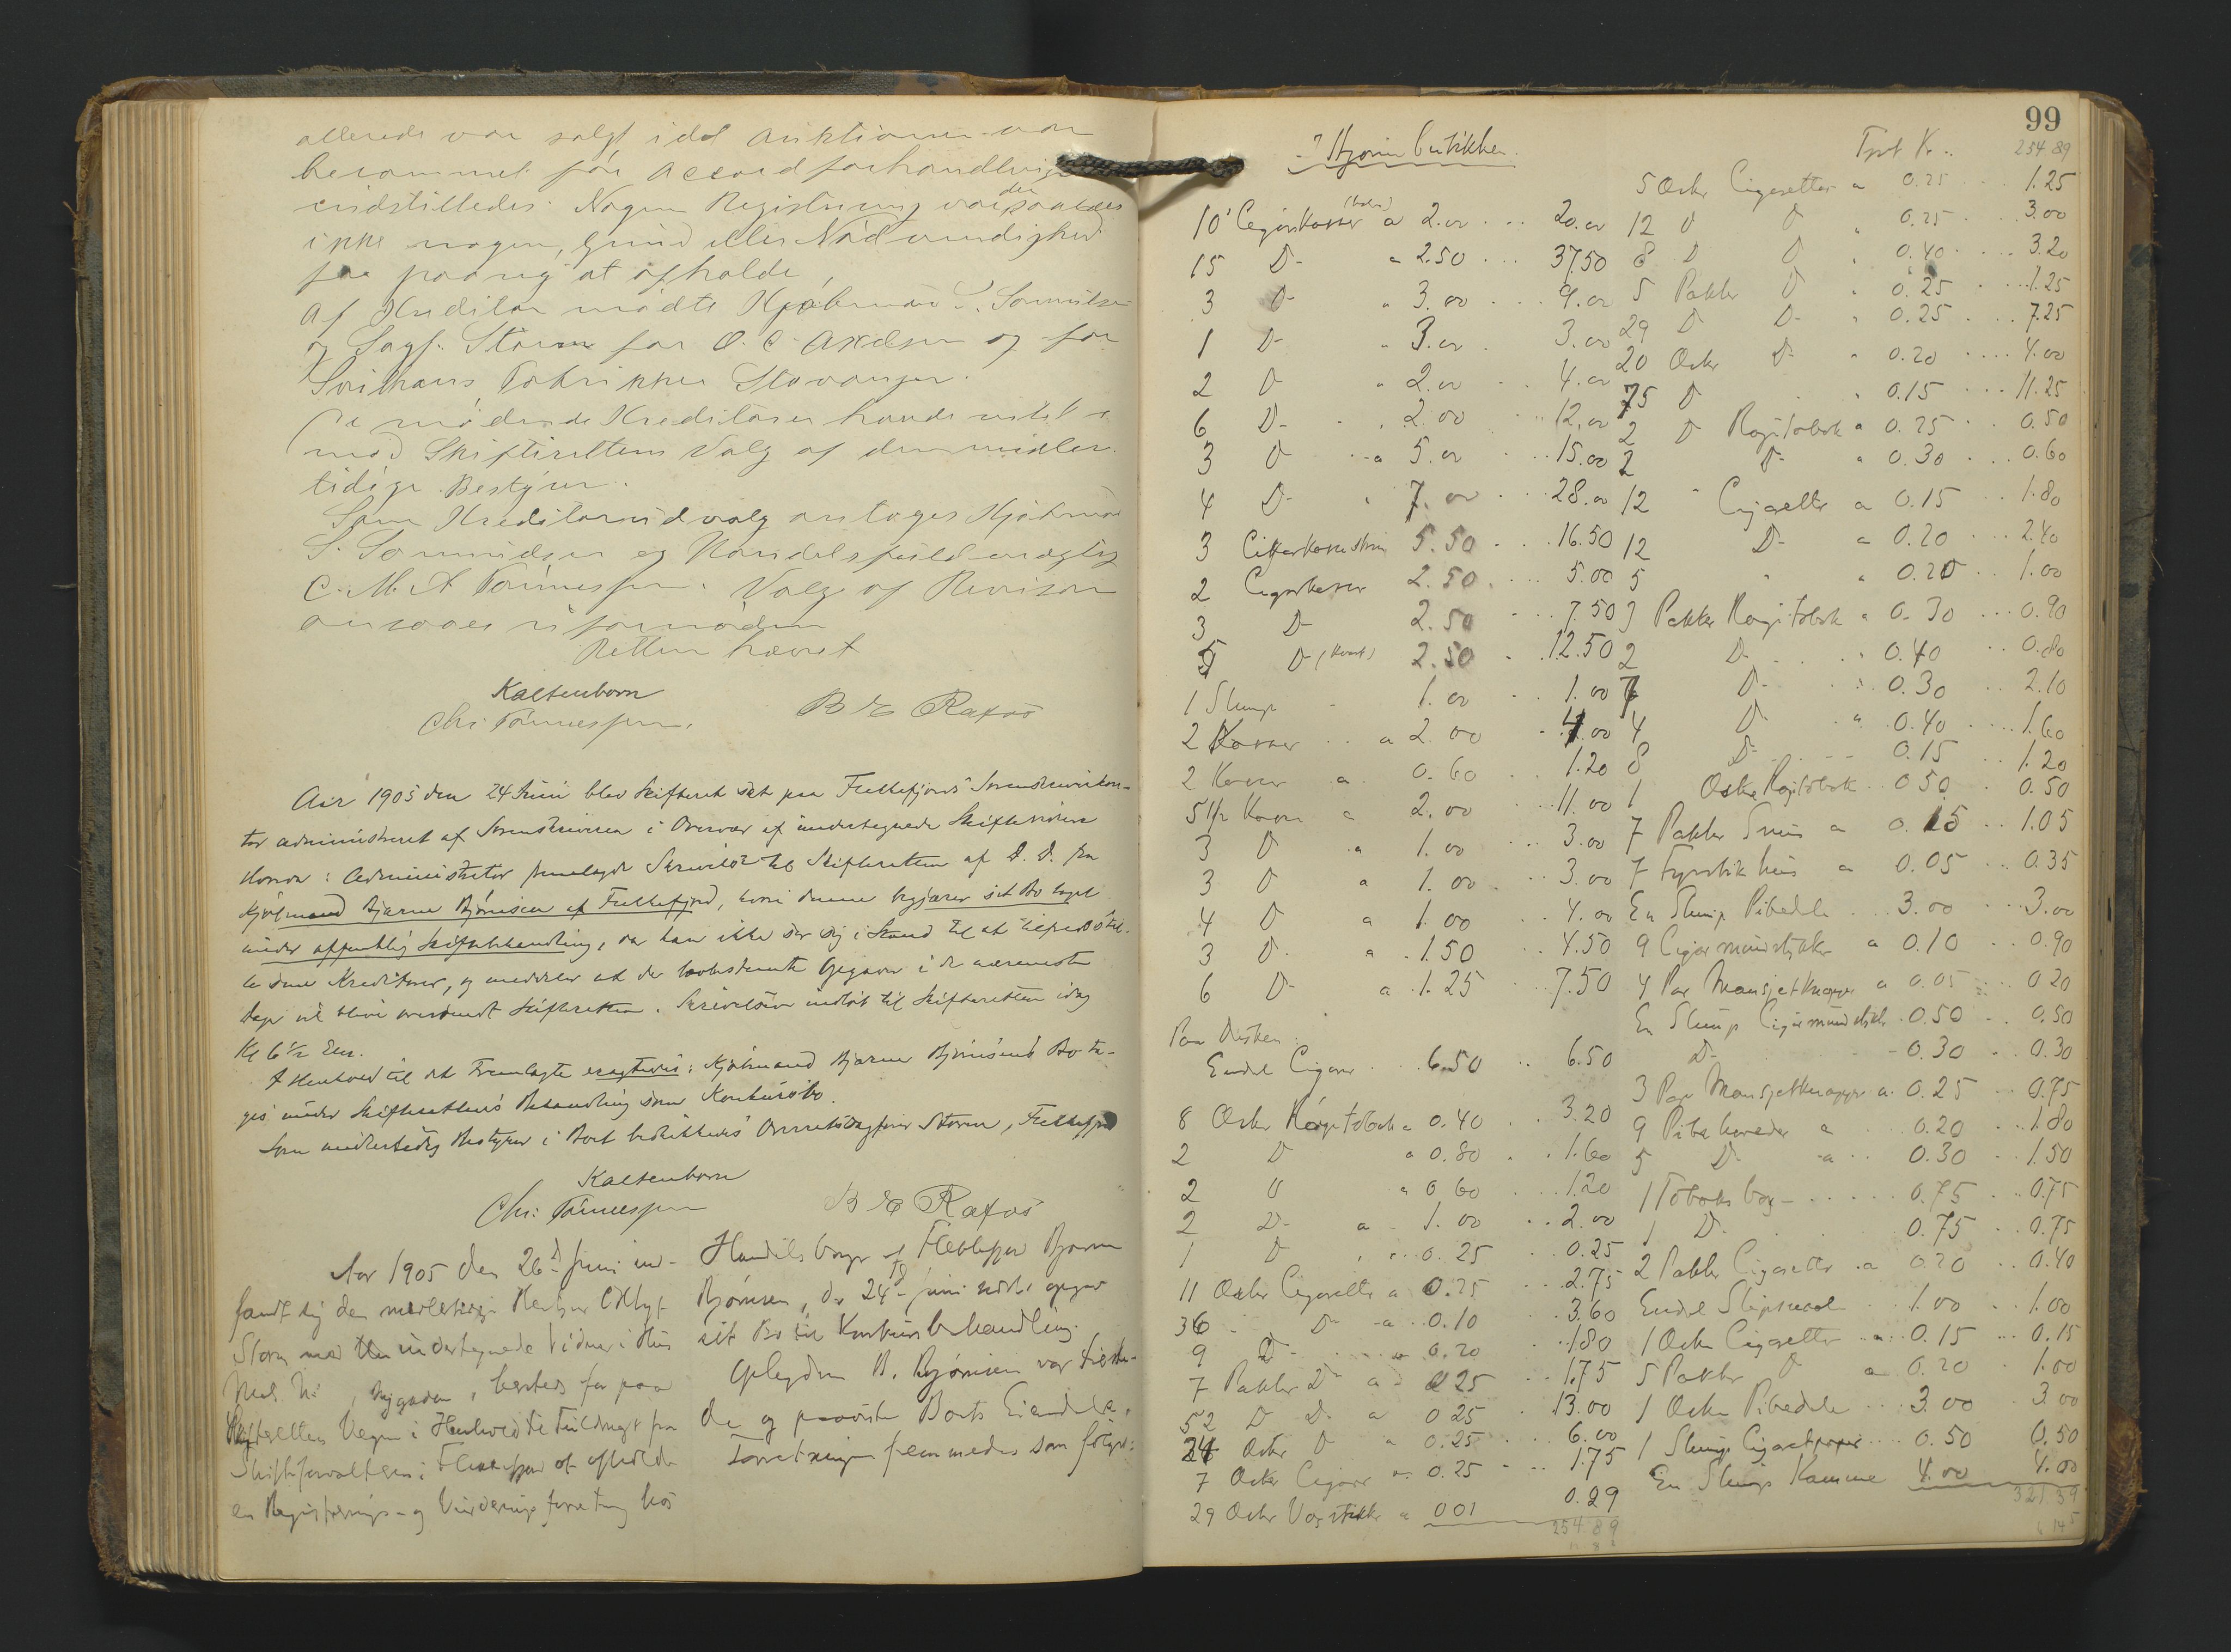 allerede var solgt idet Auktionen var
berammet før Accordforhandlingen
indstilledes. Nogen Registrering var der
ikke nogen Grund eller Nødvendighed
for paany at afholde
Af Kreditor mødte Kjøbmand S.
og Sagf. Storm for O. C. Axelsen og for
Fabrikker Stavanger.
De mødende Kreditorer havde intet
mod Skifterettens Valg af den midler-
tidige Bestyrer.
Som Kreditorudvalg antoges Kjøbmand
S. og Handelsfuldmægtig
C. M. A Tønnessen. Valg af Revisor
ansaaes ufornøden
Retten hævet
Kaltenborn
Chr: Tønnessen. B E Rafos
Aar 1905 den 24 Juni blev Skifteret sat paa Flekkefjords Sorenskriverkon-
tor administreret af Sorenskriveren i Overvær af undertegnede Skiftevidner
Hvorda: Administrator fremlagde Skrivelse til Skifteretten af D. D. fra
Kjøbmand Bjarne Bjørnsen af Flekkefjord, hvori denne begjærer sit Bo taget
under offentlig Skiftebehandling, da han ikke ser sig i Stand til at tilfredsstil-
le sine Kreditorer, og meddeler at de lovbestemte Opgaver i de nærmeste
Dage vil blive oversendt Skifteretten. Skrivelsen indløb til Skifteretten idag
Kl 6 1/2 Em.
I Henhold til det Fremlagte eragtedes: Kjøbmand Bjarne Bjørnsens Bo ta-
ges under Skifterettens Behandling som Konkursbo.
Som midlertidig Bestyrer i Boet beskikkedes Overretssagfører Storm, Flekkefjord
Kaltenborn
Chr: Tønnessen B E Rafos
Aar 1905 den 26d Juni ind-
fandt sig den midlertidige Bestyrer
Storm med de undertegnede Vidner i Hus
Mat. No , Nygaden, for paa
Skifterettens Vegne i Henhold til Fuldmagt fra
Skifteforvalteren i Flekkefjord at afholde
en Registrerings- og Vurderingsforretning hos
Handelsborger af Flekkefjord Bjarne
Bjørnsen, der 24d Juni opgav
sit Bo til Konkursbehandling.
Opbyderen B. Bjørnsen var tilste-
de og paaviste Boets Eiendele.
Forretningen fremmedes som følger:
99
I Hjørnebutikken.
10 Cigarkasser a 2.00 20.00
15 D- a 2.50 37.50
3 D- " 3.00 9.00
1 D- " 3.00 3.00
2 D " 2.00 4.00
6 D- " 2.00 12.00
3 D a 5.00 15.00
4 D- " 7.00 28.00
3 5.50 16.50
2 Cigarkasser 2.50 5.00
3 D- 2.50 7.50
5 D- 2.50 12.50
1 Slump 1.00 1.00
2 Kasser a 2.00 4.00
2 Kasser a 0.60 1.20
5 1/2 Kasser a 2.00 11.00
3 D a 1.00 3.00
3 D a 1.00 3.00
4 D a 1.00 4.00
3 D- a 1.50 4.50
6 D- a 1.25 7.50
Paa Disken:
Endel Cigarer 6.50 6.50
8 Æsker Røgetobak a 0.40 3.20
2 D " 0.80 1.60
2 D " 0.60 1.20
2 D- a 1.00 2.00
1 D " 0.25 0.25
11 Æsker Cigaretter a 0.25 2.75
36 D- a 0.10 3.60
9 D- a 0.20 1.80
7 Pakker D- a 0.25 1.75
52 D D- a 0.25 13.00
24 Æsker D " 0.25 6.00
7 Æsker Cigarer a 0.25 1.75
29 Æsker Voxstikker a 0.01 0.29
254.89
Tpt Kr. 254.89
5 Æsker Cigaretter a 0.25 1.25
12 D D " 0.25 3.00
8 D D " 0.40 3.20
5 Pakker D " 0.25 1.25
29 D D- " 0.25 7.25
20 Æsker D- " 0.20 4.00
75 D " 0.15 11.25
2 D Røgetobak a 0.25 0.50
2 D- " 0.30 0.60
12 " Cigaretter a 0.15 1.80
12 D- a 0.20 2.40
5 " " 0.20 1.00
3 Pakker Røgetobak a 0.30 0.90
2 D- " 0.40 0.80
7 D- " 0.30 2.10
4 D a 0.40 1.60
8 D- 0.15 1.20
1 Æske Røgetobak 0.50 0.50
7 Pakker Snus a 0.15 1.05
7 Fyrstikhus a 0.05 0.35
En Slump Pibedele 3.00 3.00
9 Cigarmundstykker a 0.10 0.90
4 Par Mansjetknapper a 0.05 0.20
En Slump Cigarmundstykker 0.50 0.50
D- 0.30 0.30
3 Par Mansjetknapper a 0.25 0.75
9 Pibehoveder a 0.20 1.80
5 D- a 0.30 1.50
1 Tobaksbox 0.75 0.75
1 D. 0.75 0.75
2 Pakker Cigaretter a 0.20 0.40
Endel 1.00 1.00
1 Æske Cigaretter a 0.15 0.15
5 Pakker D a 0.20 1.00
1 Æske Pibedele 3.00 3.00
1 Slump Cigaretpapir 0.50 0.50
En Slump Kamme 4.00 4.00
321 39